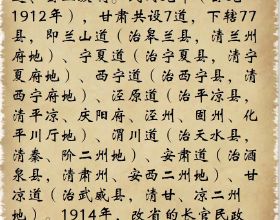 1912年），甘肃共设7道，下辖77
县，即兰山道（治皋兰县，清兰州
府地）、宁夏道（治宁夏县，清宁
夏府地）、西宁道（治西宁县，清
西宁府地）、泾原道（治平凉县，
清平凉、庆阳府、泾州、固州、化
平川厅地）、渭川道（治天水县，
清秦、阶二州地）、安肃道（治酒
泉县，清肃州、安西二州地）、甘
凉道（治武威县，清甘、凉二州
地）。1914年，改省的长官民政